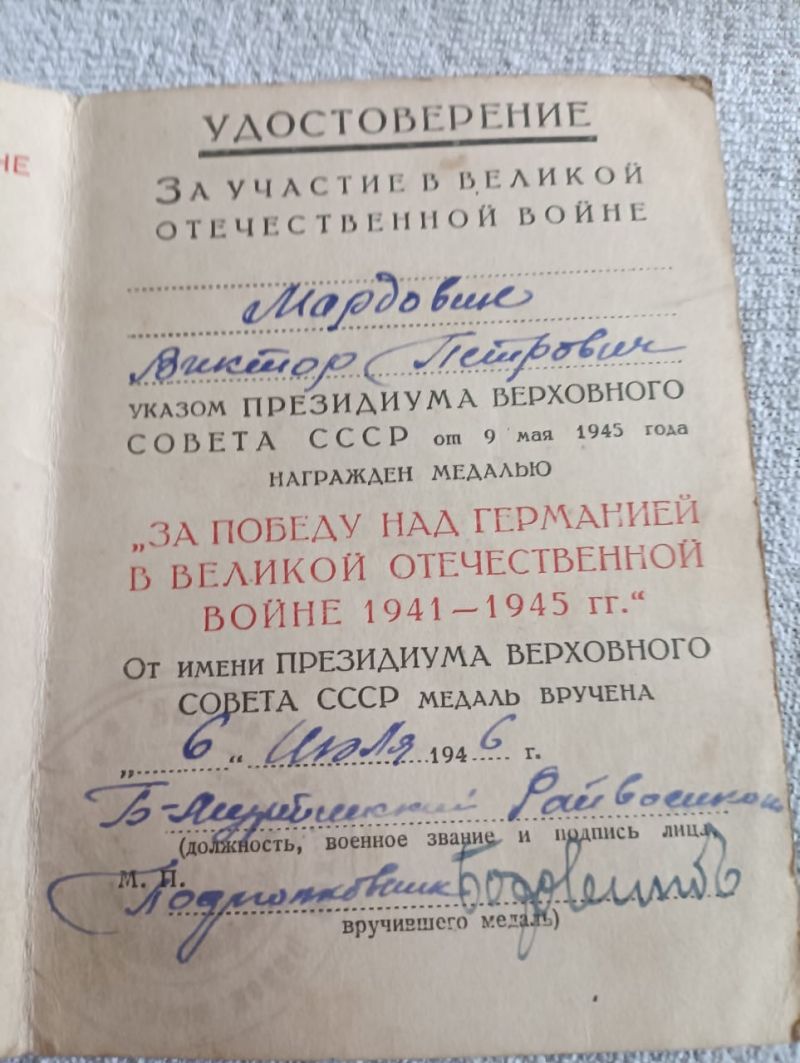 НЕ
УДОСТОВЕРЕНИЕ
ЗА УЧАСТИЕ В ВЕЛИКОЙ
ОТЕЧЕСТВЕННОЙ ВОЙНЕ
Мардовин
Виктор Петрович
УКАЗОМ ПРЕЗИДИУМА ВЕРХОВНОГО
СОВЕТА СССР от 9 мая 1945 года
НАГРАЖДЕН МЕДАЛЬЮ
„ЗА ПОБЕДУ НАД ГЕРМАНИЕЙ
В ВЕЛИКОЙ ОТЕЧЕСТВЕННОЙ
ВОЙНЕ 1941—1945 гг.“
От имени ПРЕЗИДИУМА ВЕРХОВНОГО
СОВЕТА СССР МЕДАЛЬ ВРУЧЕНА
„ 6 “ Июля 1946 г.
Райвоенком
(должность, военное звание и подпись лица,
М. П. Подполковник
вручившего медаль)